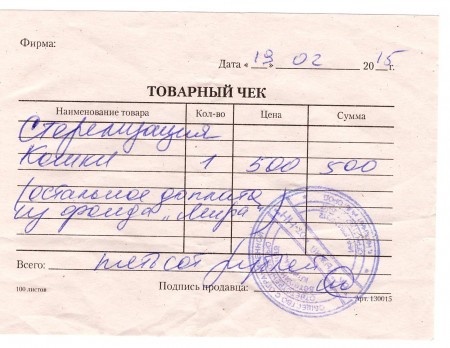 Фирма:
Дата «19» 02 2015 г.
ТОВАРНЫЙ ЧЕК
Наименование товара Кол-во Цена Сумма
Стерелизация
Кошки 1 500 500
(остальное доплата
из фонда „Мира”)
Всего: пятьсот рублей
100 листов Подпись продавца: Арт. 130015